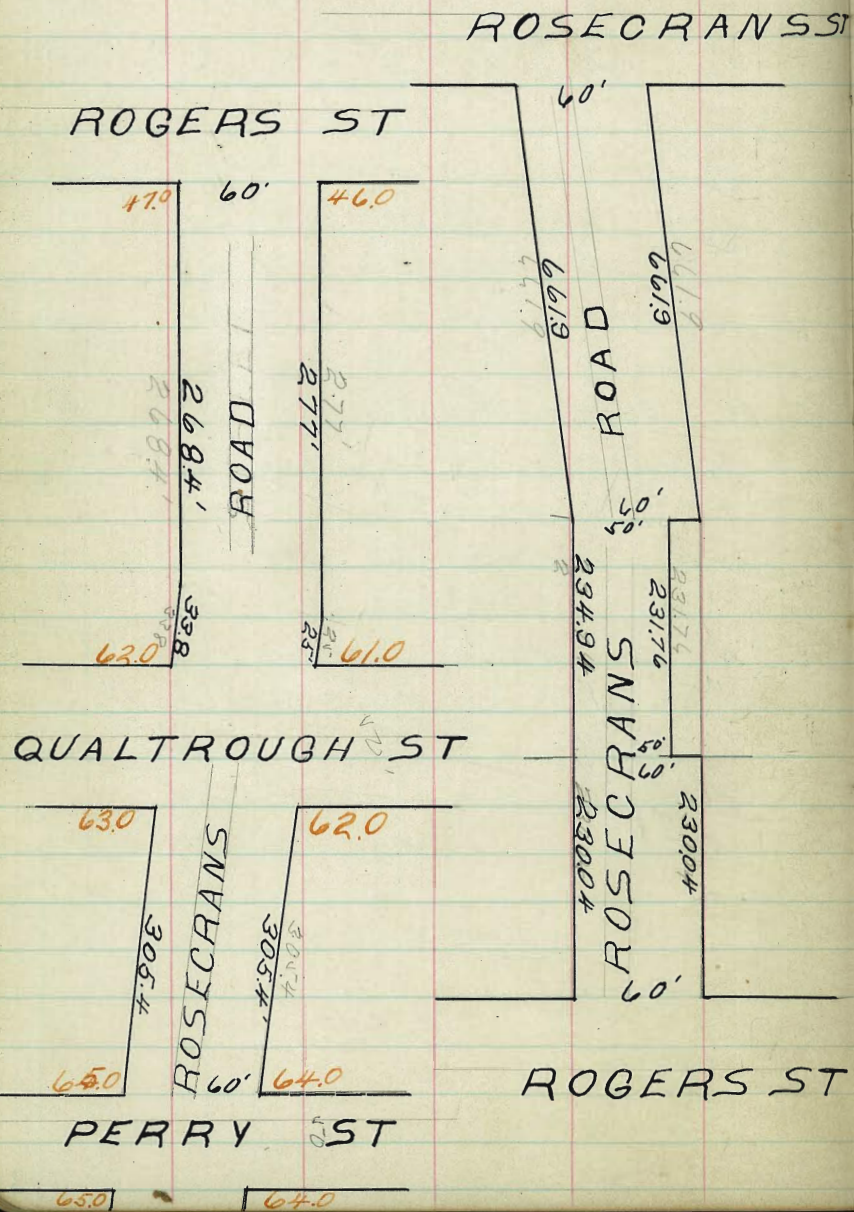 ROSECRANS ST
60'
ROGERS ST
47.0 60' 46.0
268.4'
268.4'
ROAD
277'
277'
33.8
33.8
25'
25'
62.0 61.0
QUALTROUGH ST
63.0 62.0
305.4
ROSECRANS
305.4'
305.4
65.0 60' 64.0
PERRY ST
65.0 64.0
661.9
661.9
ROAD
661.9
661.9
50'
50'
234.94
231.76
231.76
ROSECRANS
50'
60'
230.04
230.04
60'
ROGERS ST